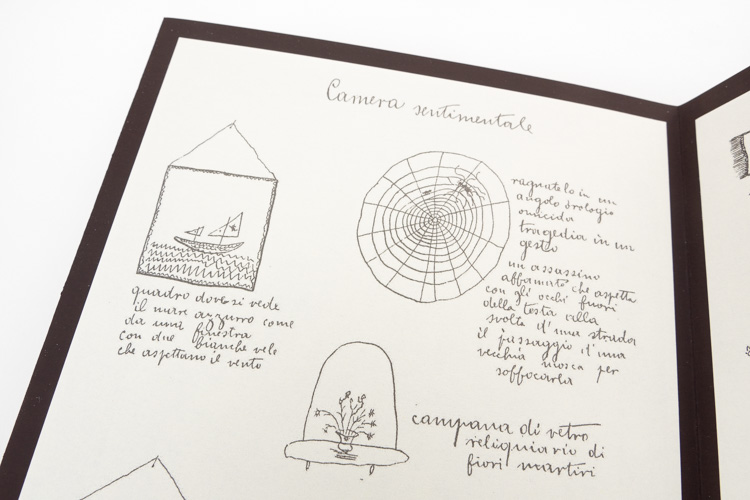 Camera sentimentale
quadro dove si vede
il mare azzurro come
da una finestra
con due bianche vele
che aspettano il vento
ragnatela in un
angolo orologio
omicida
tragedia in un
gesto
un assassino
affamato che aspetta
con gli occhi fuori
della testa alla
svolta d'una strada
il passaggio d'una
vecchia mosca per
soffocarla
campana di vetro
reliquiario di
fiori martiri